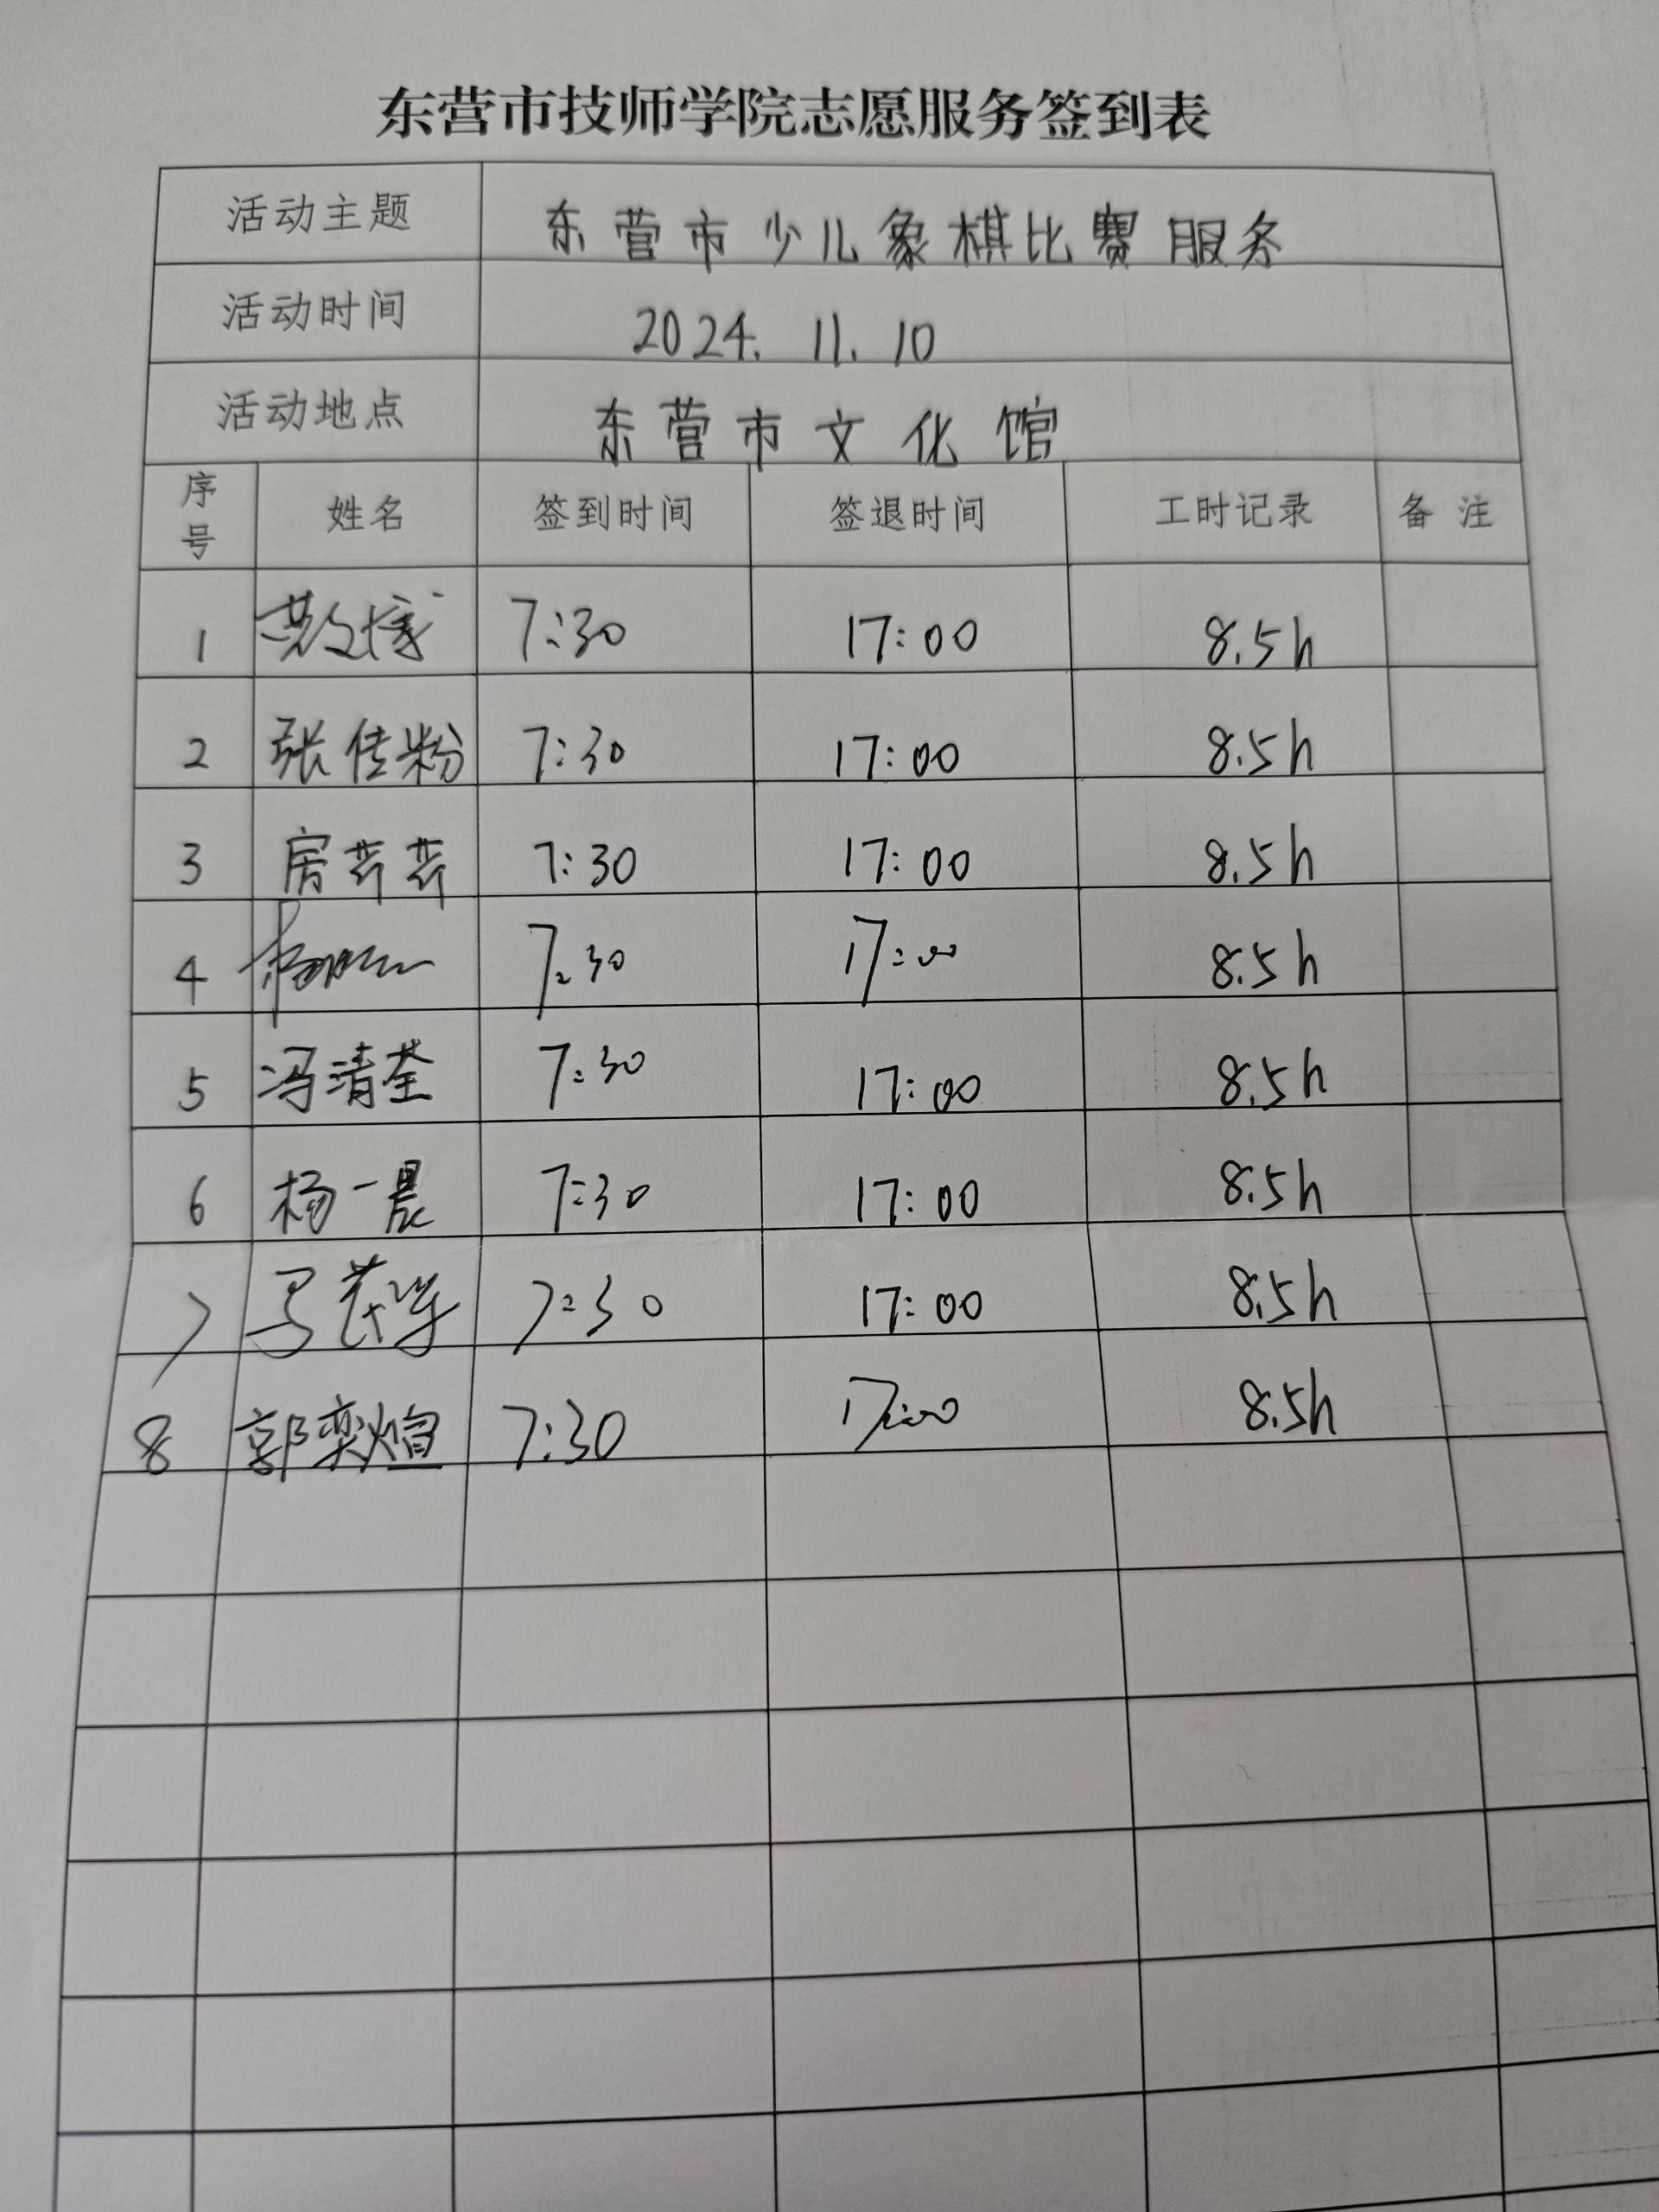 东营市技师学院志愿服务签到表
活动主题 东营市少儿象棋比赛服务
活动时间 2024.11.10
活动地点 东营市文化馆
序号 姓名 签到时间 签退时间 工时记录 备注
1 7:30 17:00 8.5h
2 张佳粉 7:30 17:00 8.5h
3 房芸芸 7:30 17:00 8.5h
4 7:30 17:00 8.5h
5 冯清荃 7:30 17:00 8.5h
6 杨一晨 7:30 17:00 8.5h
7 马 7:30 17:00 8.5h
8 郭奕煊 7:30 17:00 8.5h